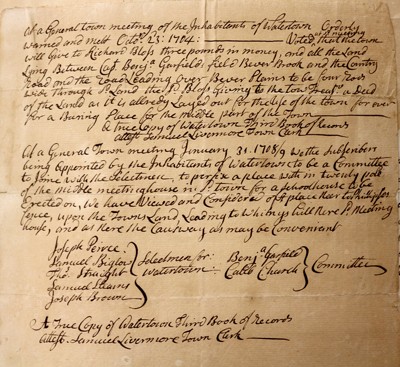 At a General town meeting of the Inhabitants of Watertown Orderly
warned and mett Octor 23: 1704: Voted that the town
will Give to Richard Bloss three pounds in money, and all the Land
Lying Between Capt Benja Garfield: field Bever Brook and the Country
Road and the Road Leading over Bever Plains to be four Rods
wide through sd Land the sd Bloss Giving to the Town Treasr a Deed
of the Land as it is allready Layed out for the Use of the town for ever
for a Buring Place for the middle part of the Town
A true Copy of Watertown Third Book of Records
Attest Samuel Livermore Town Clark
At a General Town meeting January 31. 1708/9 We the Subscribers
being appointed by the Inhabitants of Watertown to be a Committe
to Joine with the Selectmen, to perfix a place with in twenty pole
of the middle meetinghouse in sd town for a schoolhouse to be
Erected on, We have Viewed and Consider'd of place near to
fence, upon the Towns Land, Leading to Whitneys hill nere sd Meeting
house, and as nere the Causway as may be convenient
Joseph Peirce
Samuel Biglow
Tho: Straight
Samuel Stearns
Joseph Browne
Selectmen for:
Watertown:
Benja Garfield
Caleb Church
Committee
A True Copy of Watertown Third Book of Records
Attest. Samuel Livermore Town Clark